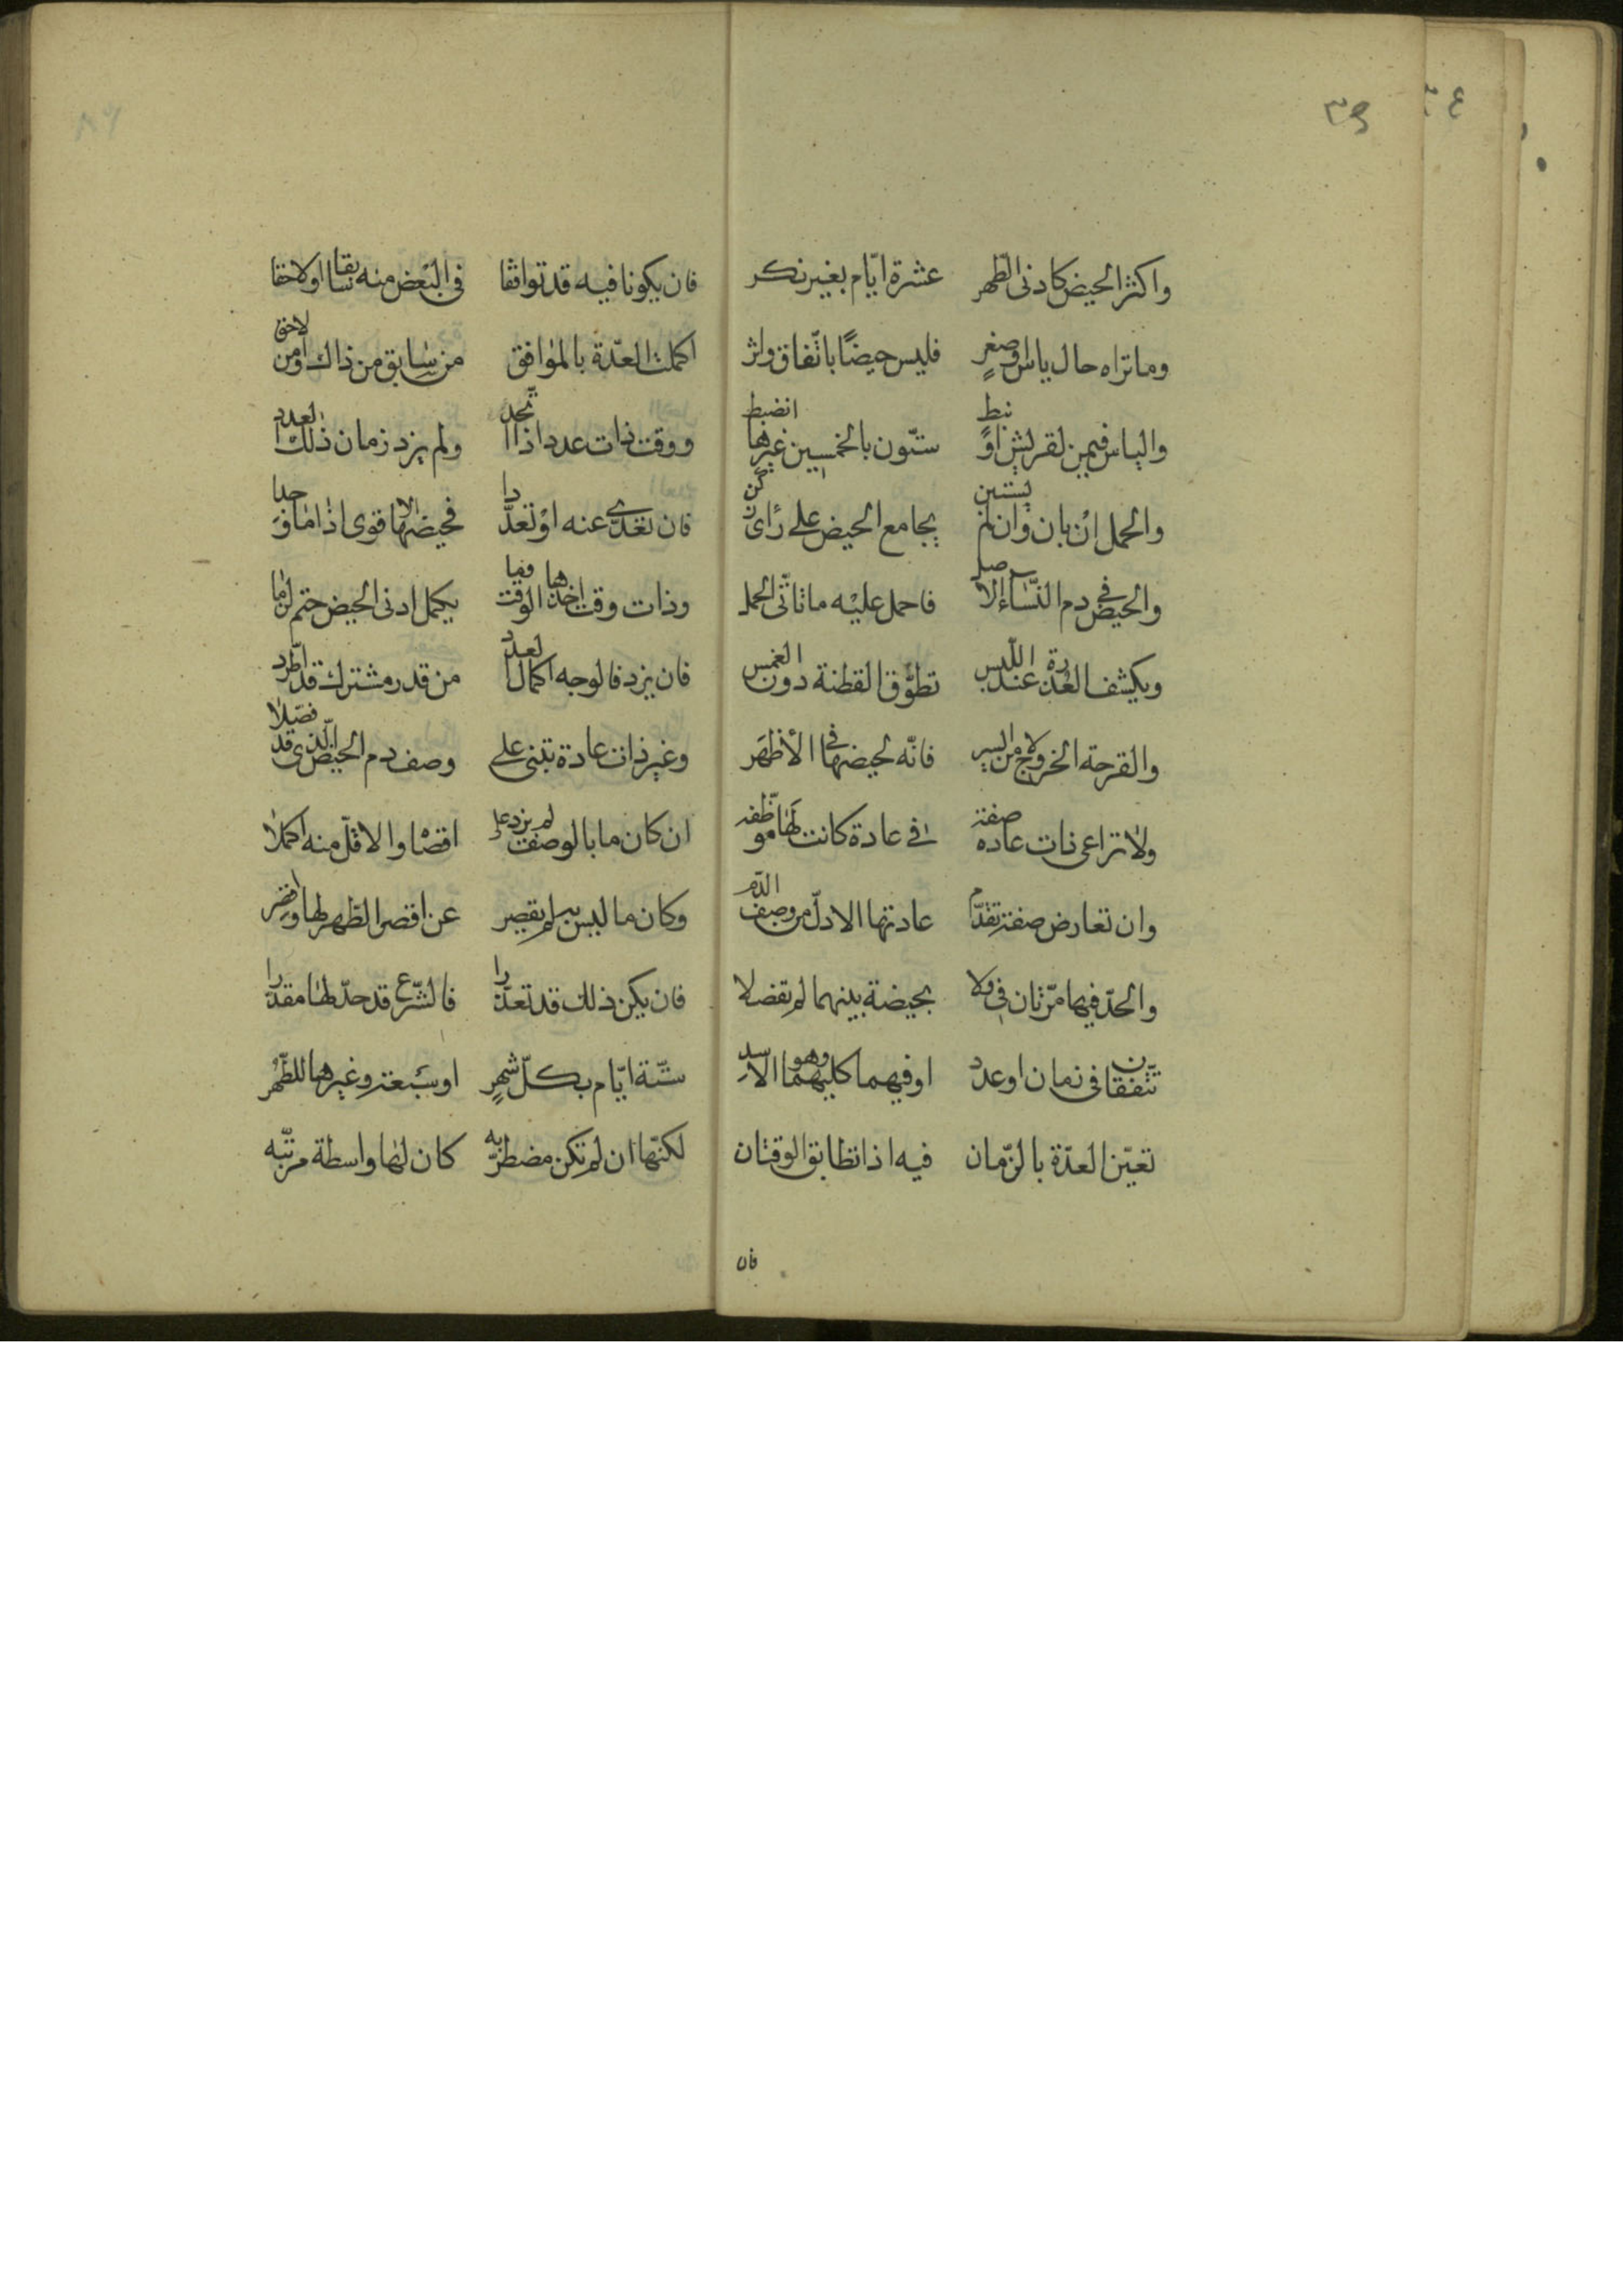 ٣٥
واكثر الحيض كادنى الطّهر عشرة ايّام بغير نكر
وما تراه حال ياس او صغرٍ فليس حيضًا باتّفاق واثر
والياس فيمن لقريش او نبط ستّون بالخمسين غيرها انضبط
والحمل ان بان وان لم يستبن يجامع الحيض على رأى
والحيض في دم النّساء الاصل فاحمل عليه ما تأتّى الحمل
ويكشف العذرة عند اللّبس تطوّق القطنة دون الغمس
والقرحة الخروج من الايسر فانّه لحيضها في الأظهر
ولا تراعى ذات عاده صفة في عادة كانت لها موظّفه
وان تعارض صفة تقدّم عادتها الادلّ من وصف الدّم
والحدّ فيها مرّتان فى ولا بحيضة بينهما لم تفصلا
تتّفقان فى زمان او عدد او فيهما كليهما وهو الاسد
تعيّن العدّة بالزّمان فيه اذا تطابق الوقتان
فان
فان يكونا فيه قد توافقا فى البعض منه سابقا او لاحقا
اكملت العدّة بالموافق من سابق من ذاك او من لاحق
ووقت ذات عدد اذا اتّحد ولم يزد زمان ذلك العدد
فان تعدّى عنه او تعدّدا فحيضها الاقوى اذا ما وجدا
وذات وقت اخذها الوقت يكمل ادنى الحيض حتم لزما
فان يزد فالوجه اكمال العدد من قدر مشترك قد اطّرد
وغير ذات عادة تبنى على وصف دم الحيض الّذى قد فصّلا
ان كان ما بالوصف لم يزد على اقصا والاقلّ منه اكملا
وكان ما ليس به لم يقصر عن اقصر الطّهر لها
فان يكن ذلك قد تعذّرا فالشّرع قد حدّ لها مقدّرا
ستّة ايّام بكلّ شهرٍ او سبعة وغيرها للطّهر
لكنّها ان لم تكن مضطربه كان لها واسطة مرتّبه